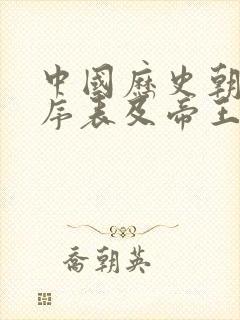 中國歷史朝
序表及帝王
喬朝英